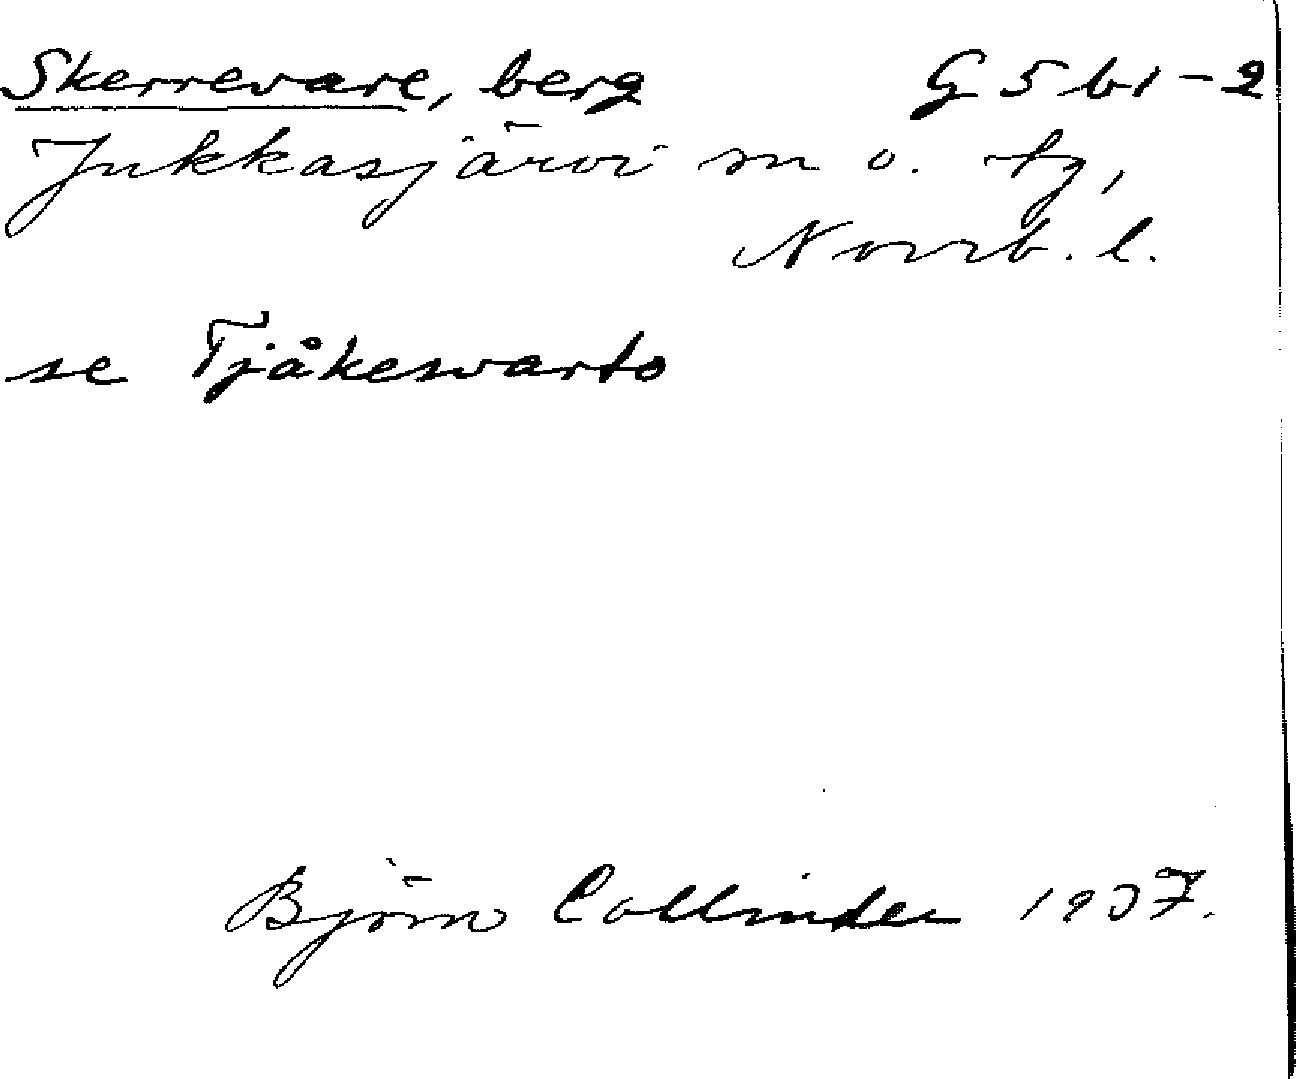 Skerrevare, berg G 5 b1-2
Jukkasjärvi sn o. tg,
Norrb. l.
se Tjåkesvarto
Björn Collinder 1937.